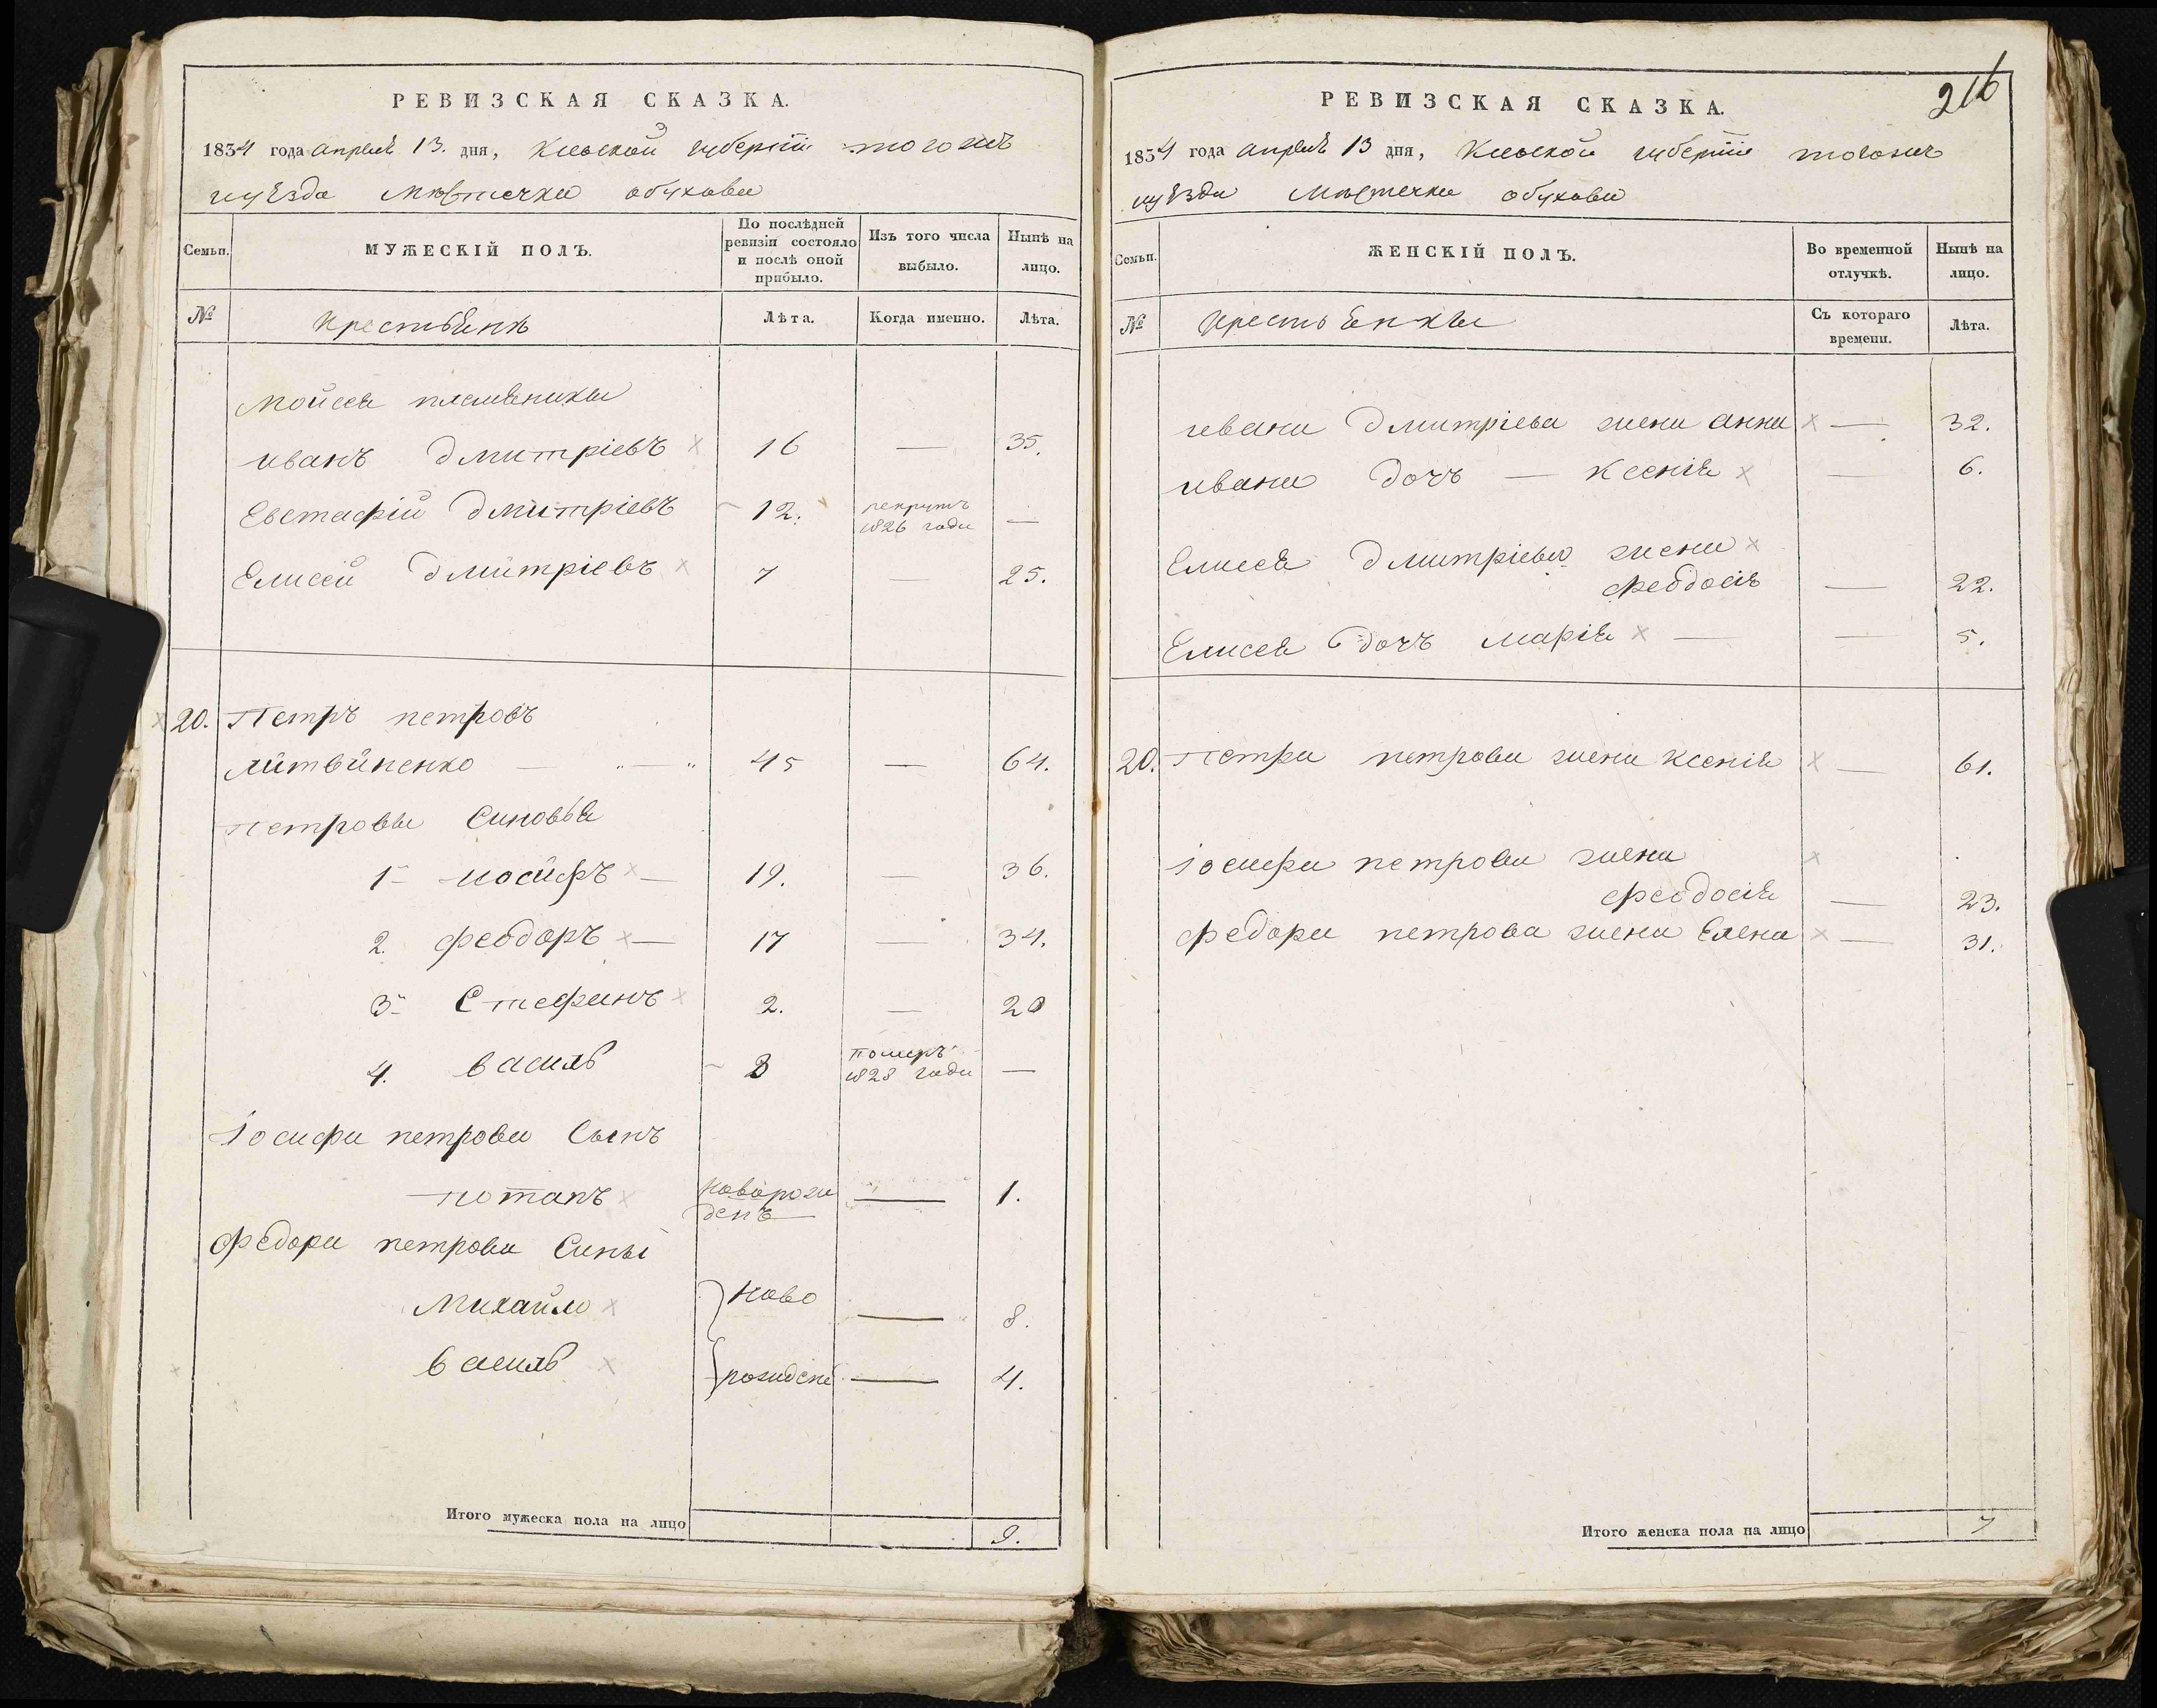 РЕВИЗСКАЯ СКАЗКА.
1834 года апреля 13. дня, Киевской губернии тогожъ
уѣзда мѣстечка обухова
Семьи.
МУЖЕСКІЙ ПОЛЪ.
По послѣдней ревизіи состояло и послѣ оной прибыло.
Изъ того числа выбыло.
Нынѣ на лицо.
№
крестьяне
Лѣта.
Когда именно.
Лѣта.
Мойсея племяники
иванъ дмитріевъ × 16 — 35.
Евстафій дмитріевъ 12. рекрутъ 1826 года —
Елисей дмитріевъ × 7 — 25.
× 20. Петръ петровъ
литвиненко — „ — „ 45 — 64.
Петровы Синовья
1 иосифъ × — 19. — 36.
2. феодоръ × — 17 — 34.
3 Стефанъ × 2. — 20
4. василь 8 померъ 1828 года —
Іосифа петрова Сынъ
потапъ × новорожденъ — 1.
Федора петрова Сины
Михайло × ново — 8.
василь × рождени — 4.
Итого мужеска пола на лицо 9.
216
РЕВИЗСКАЯ СКАЗКА.
1834 года апреля 13 дня, Киевской губернии тогожъ
уѣзда мѣстечка обухова
Семьи.
ЖЕНСКІЙ ПОЛЪ.
Во временной отлучкѣ.
Нынѣ на лицо.
№
крестьянки
Съ котораго времени.
Лѣта.
ивана дмитріева жена анна × — 32.
ивана дочъ — ксенія × — 6.
Елисея дмитріева жена ×
феодосія — 22.
Елисея дочъ марія × — — 5.
20. Петра петрова жена ксенія × — 61.
Іосифа петрова жена ×
феодосія — 23.
федора петрова жена Елена × — 31.
Итого женска пола на лицо 7